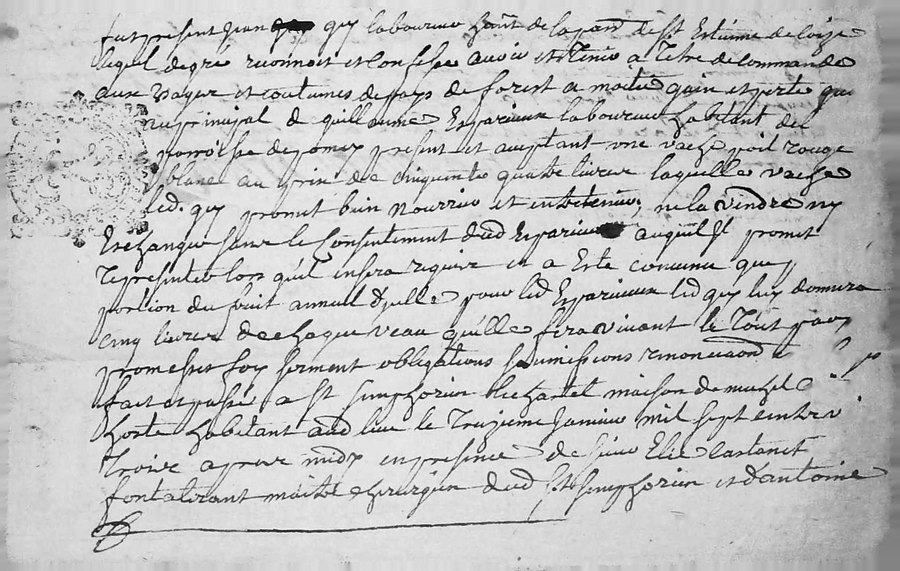 fut present Jean guy laboureur hant de la parr de St Estienne de
lequel de gré reconnoit et confesse avoir et tenir a titre de commande
aux usages et coutumes de pays de forest a moitié guin et perte
principal de guilleaume Esparieux laboureur habitant de
parroisse de pomey present et aceptant une vache poil rouge
blanc au prix de cinquente quatre livres laquelle vache
led. guy promet bien nourrir et entretenir, ne la vendre ny
Eschanger sans le consentement dud Esparieux auquel Il promet
representer lors qu'il en sera requis et a Esté convenu que pr
portion du fruit annuel d'ycelle pour led Esparieux led guy luy donnera
cinq livres de chaque veau qu'elle fera vivant le Tout par
promesses foy serment obligations soumissions renonciaons &
fait et passé a St simphorien le chatel maison de michel
horte habitant aud lieu le Treizieme Janvier mil sept cents
Trois apres midy en presence de sieur Elie Castanet
fontalirant maitre chirurgien dud St simphorien et d'antoine